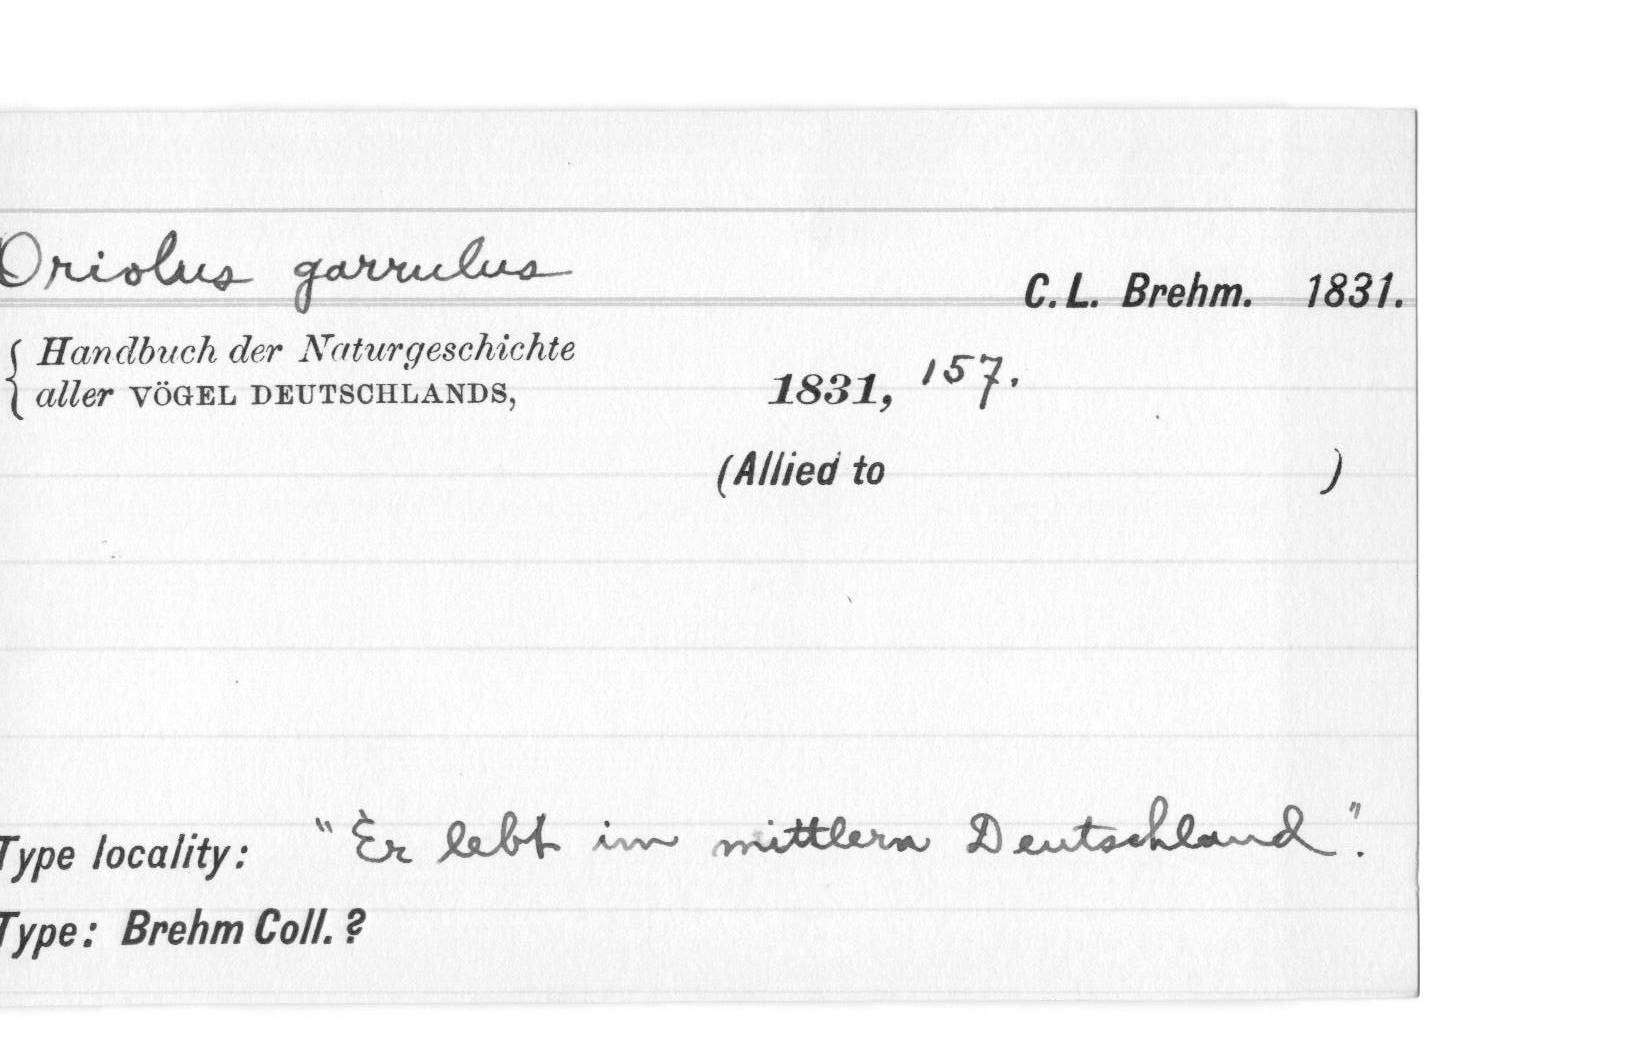 Oriolus garrulus
C. L. Brehm. 1831.
Handbuch der Naturgeschichte
aller VÖGEL DEUTSCHLANDS, 1831, 157.
(Allied to )
Type locality: "Er lebt im mittlern Deutschland".
Type: Brehm Coll. ?